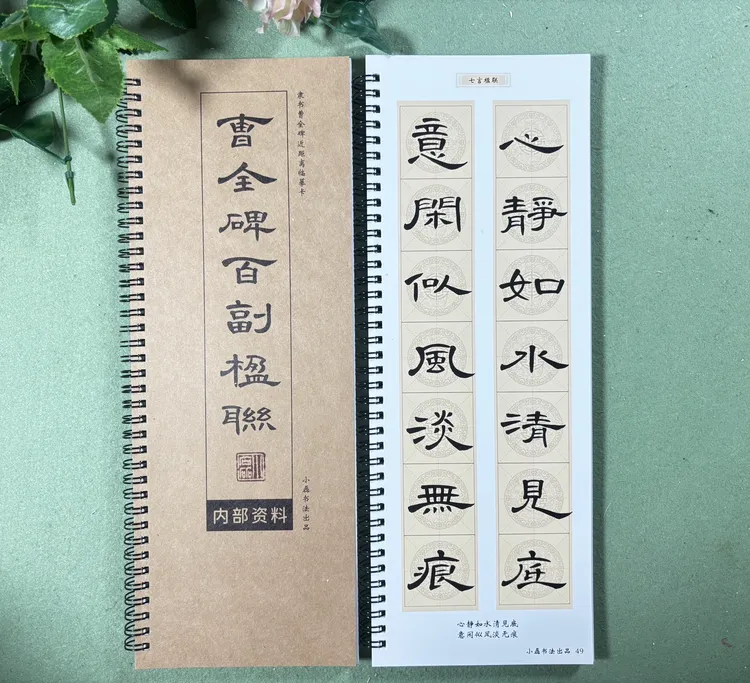 隶书曹全碑近距离临摹卡
曹全碑百副楹聯
小磊书法出品
内部资料
七言楹联
心靜如水清見底
意閑似風淡無痕
心静如水清见底
意闲似风淡无痕
小磊书法出品 49